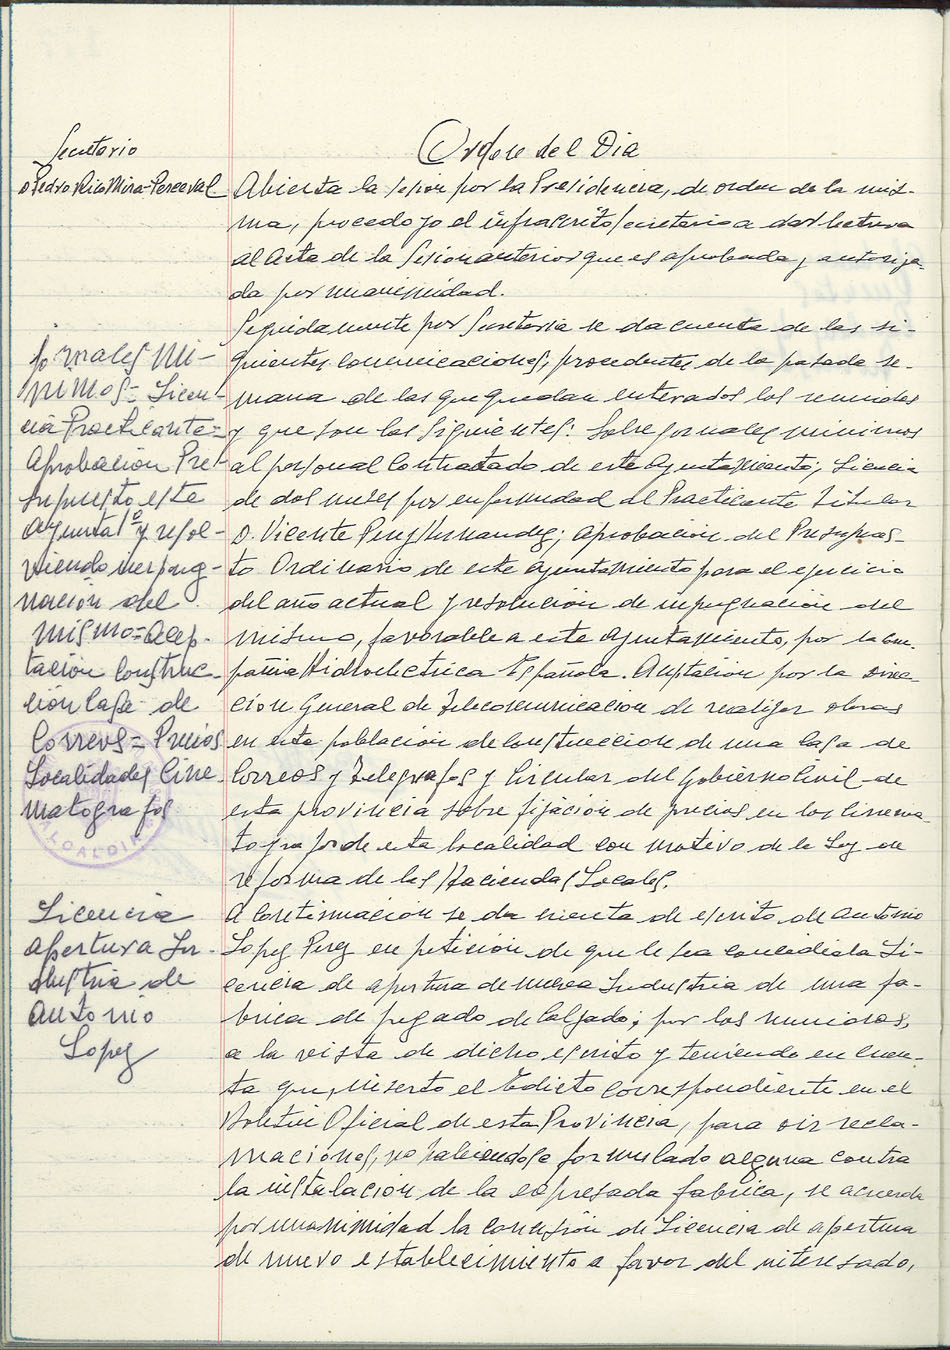 Secretario
D Pedro Rico Mira-Perceval
Jornales Mí-
nimos = Licen-
cia Practicante =
Aprobación Pre-
supuesto este
Ayuntatº y resol-
viendo impug-
nación del
mismo = Acep-
tación construc-
ción Casa de
Correos = Precios
Localidades Cine-
matografos
Licencia
apertura In-
dustria de
Antonio
Lopez
Orden del Dia
Abierta la sesión por la Presidencia, de orden de la mis-
ma, procedo yo el infrascrito Secretario a dar lectura
al Acta de la Sesion anterior que es aprobada y autoriza-
da por unanimidad.
Seguidamente por Secretaria se da cuenta de las si-
guientes comunicaciones, procedentes de la pasada se-
mana de las que quedan enterados los reunidos
y que son las siguientes: Sobre jornales minimos
al personal Contratado de este Ayuntamiento; Licencia
de dos meses por enfermedad al Practicante Titular
D. Vicente Perez Hernandez; aprobacion del Presupues-
to Ordinario de este Ayuntamiento para el ejercicio
del año actual y resolución de impugnación del
mismo, favorable a este Ayuntamiento, por la Com-
pañia Hidroelectrica Española. Aceptación por la Direc-
ción General de Telecomunicacion de realizar obras
en esta población de construcción de una Casa de
Correos y Telegrafos y Circular del Gobierno Civil de
esta provincia sobre fijación de precios en los Cinema-
tografos de esta localidad con motivo de la Ley de
reforma de las Haciendas Locales.
A continuación se da cuenta de escrito de Antonio
Lopez Perez en petición de que le sea concedida Li-
cencia de apertura de nueva Industria de una fa-
brica de pegado de Calzado; por los reunidos,
a la vista de dicho escrito y teniendo en cuen-
ta que, inserto el Edicto correspondiente en el
Boletin Oficial de esta Provincia, para oir recla-
maciones, no habiendose formulado alguna contra
la instalacion de la expresada fabrica, se acuerda
por unanimidad la concesión de Licencia de apertura
de nuevo establecimiento a favor del interesado,